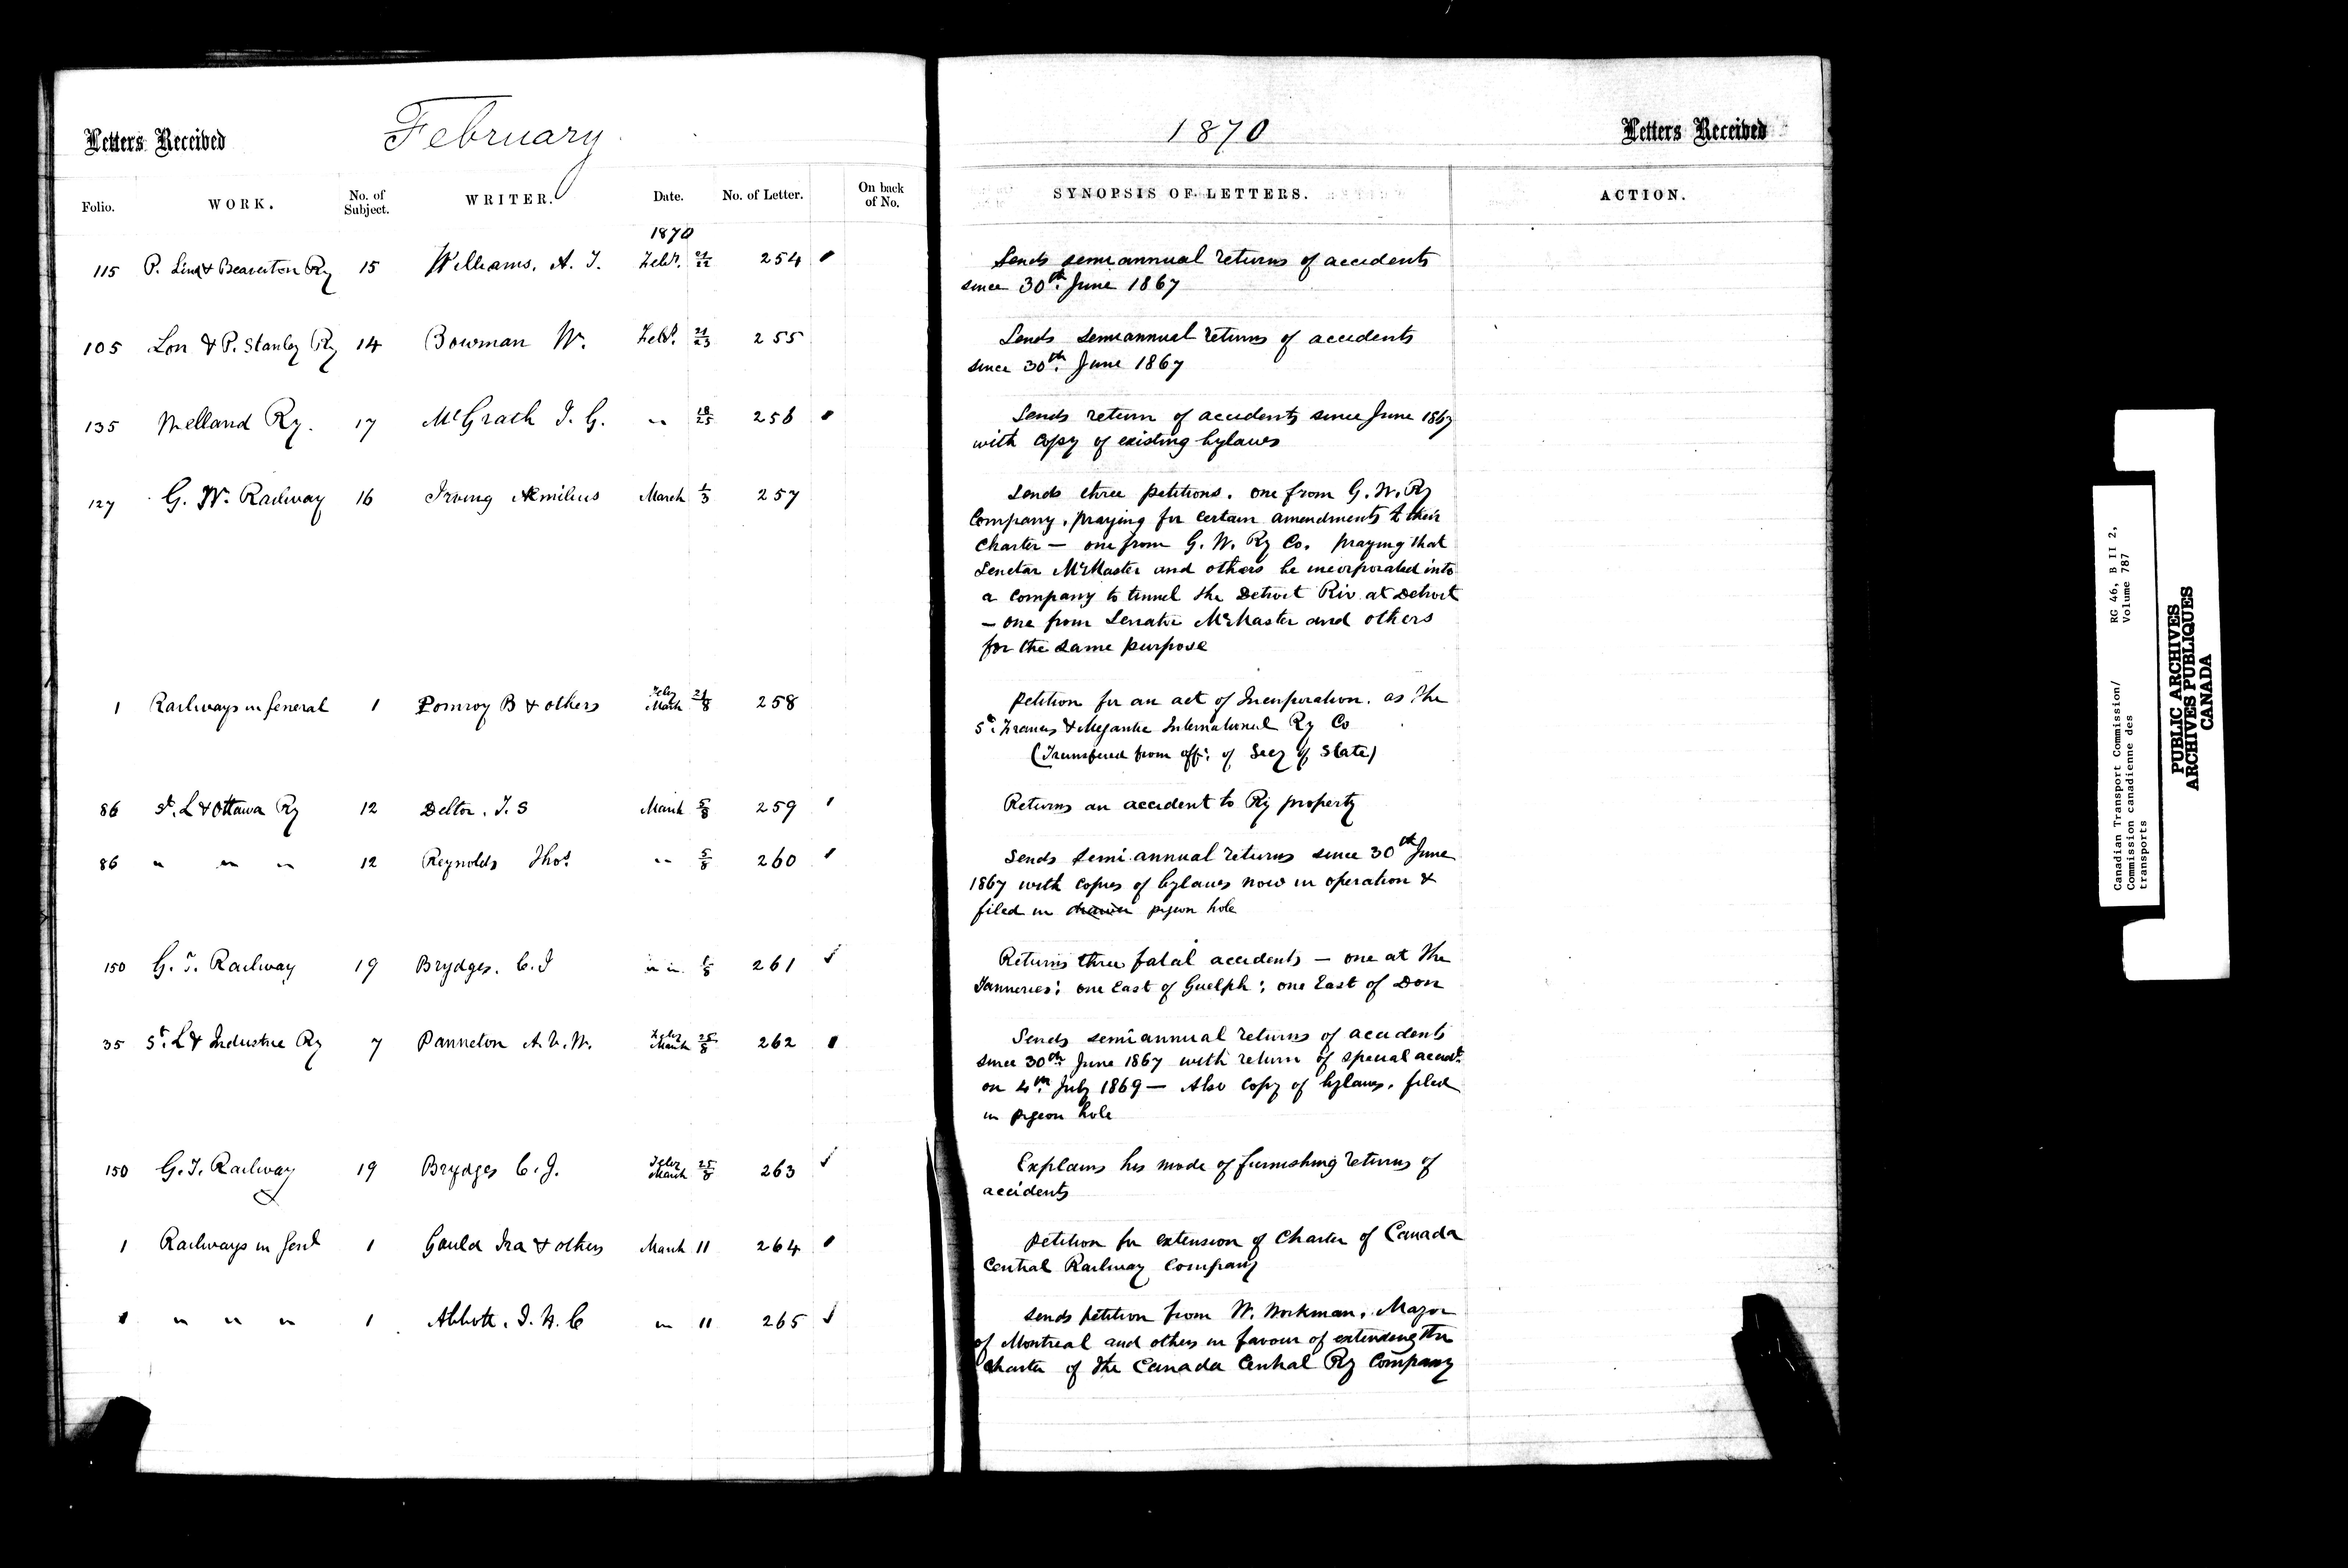 Letters Received
February
1870
Letters Received
Folio. WORK. No. of Subject. WRITER. Date. No. of Letter. On back of No. SYNOPSIS OF LETTERS. ACTION.
1870
115 P. Lind & Beaverton Ry 15 Williams, A. T. Feby. 21/22 254
Sends semiannual returns of accidents
since 30th June 1867
105 Lon & P. Stanley Ry 14 Bowman W. Feby. 21/23 255
Sends semiannual returns of accidents
since 30th. June 1867
135 Welland Ry. 17 McGrath T. G. " 18/25 256
Sends return of accidents since June 1867
with copy of existing bylaws
127 G. W. Railway 16 Irving Æmilius March 1/3 257
Sends three petitions. one from G. W. Ry
Company, praying for certain amendments to their
Charter — one from G. W. Ry Co. praying that
Senator McMaster and others be incorporated into
a Company to tunnel the Detroit Riv. at Detroit
— one from Senator McMaster and others
for the same purpose
1 Railways in General 1 Pomroy B & others Feby March 21/8 258
Petition for an act of Incorporation. as the
St. Francis & Megantic International Ry Co
(Transferred from off: of Secy of State)
86 St. L & Ottawa Ry 12 T. S March 5/8 259
Returns an accident to Ry property
86 " " " 12 Reynolds Thos. " 5/8 260
Sends semi annual returns since 30th June
1867 with copies of bylaws now in operation &
filed in pigeon hole
150 G. T. Railway 19 Brydges. C. J " " /8 261
Returns three fatal accidents — one at the
Tanneries; one East of Guelph; one East of Don
35 St. L & Industrie Ry 7 Panneton Feby March 25/8 262
Sends semiannual returns of accidents
since 30th June 1867 with return of special accidt.
on 4th. July 1869 — Also copy of bylaws. filed
in pigeon hole
150 G. T. Railway 19 Brydges C. J. Feby March 25/8 263
Explains his mode of furnishing returns of
accidents
1 Railways in Genl 1 Gould Ira & others March 11 264
Petition for extension of Charter of Canada
Central Railway Company
1 " " " 1 Abbott. J. J. C " 11 265
Sends petition from W. Workman. Mayor
of Montreal and others in favour of extending the
Charter of the Canada Central Ry Company
Canadian Transport Commission/ RG 46, B II 2,
Commission canadienne des Volume 787
transports
PUBLIC ARCHIVES
ARCHIVES PUBLIQUES
CANADA